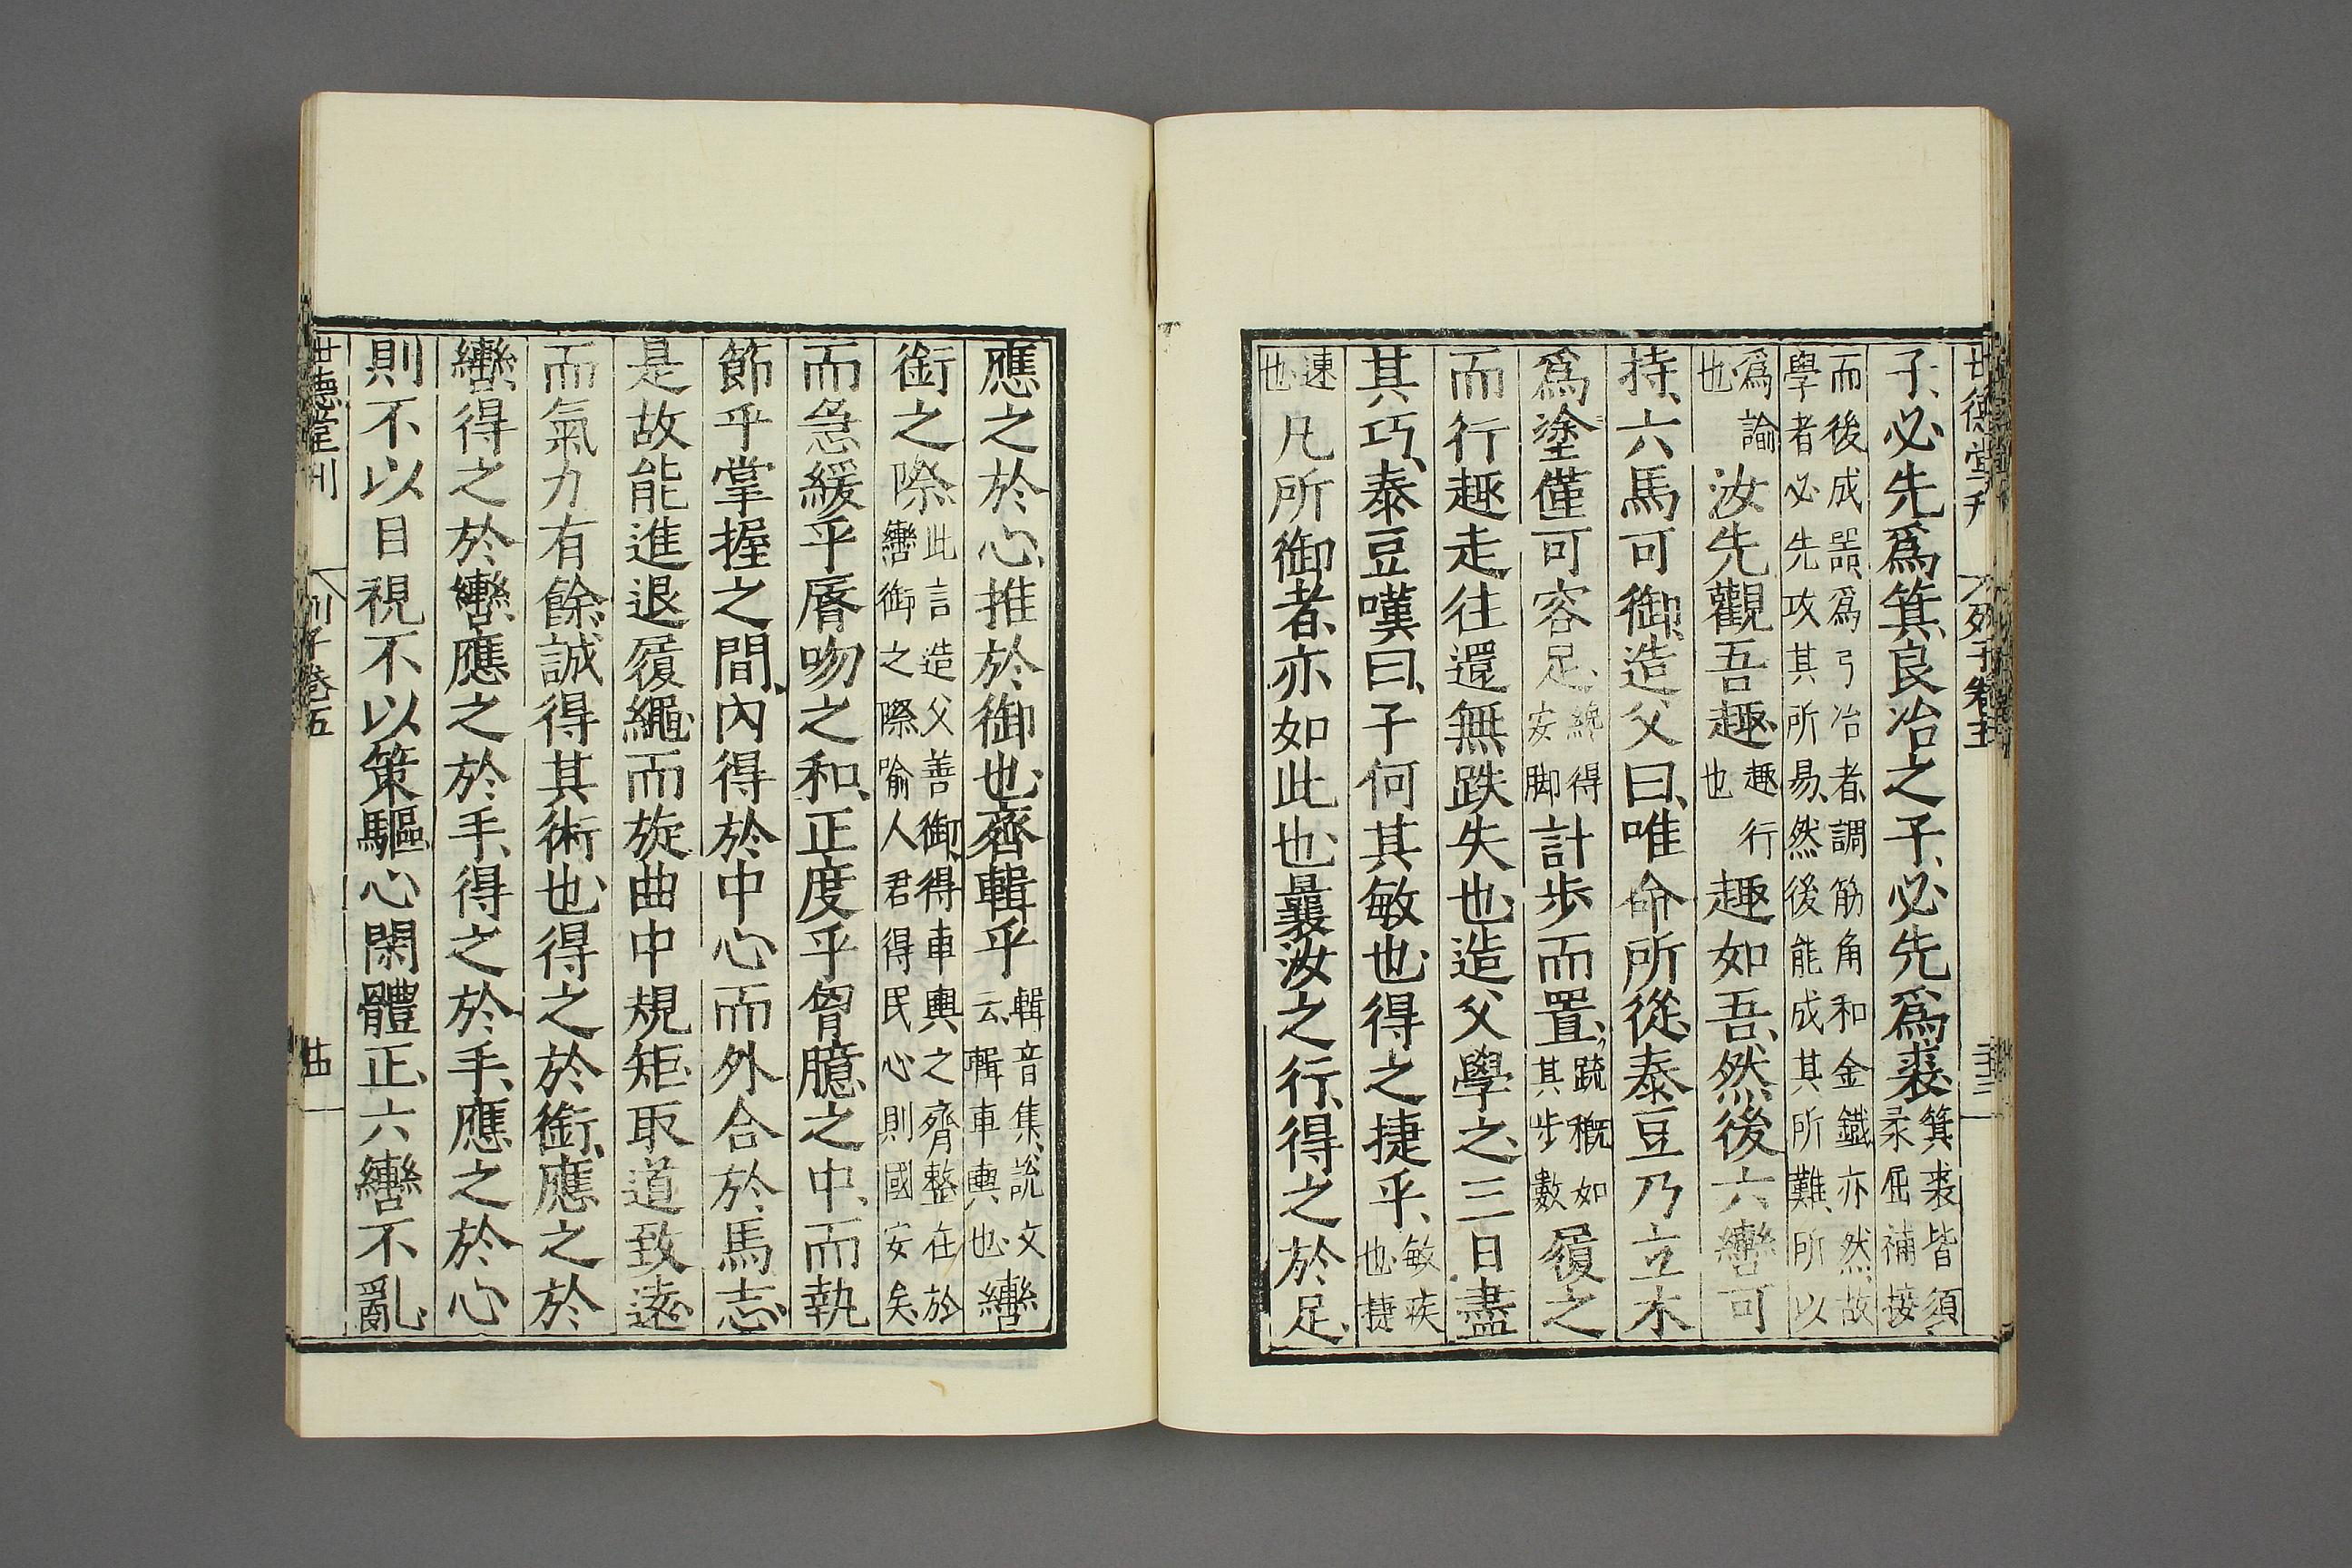 世德堂刊 列子卷五 二十三
子必先爲箕良冶之子必先爲裘箕裘皆須柔屈補接
而後成器爲弓冶者調筋角和金鐵亦然故學者必先攻其所易然後能成其所難所以
爲諭也汝先觀吾趣趣行也趣如吾然後六轡可
持六馬可御造父曰唯命所從泰豆乃立木
爲塗僅可容足纔得安脚計步而置疏概如其步數履之
而行趣走往還無跌失也造父學之三日盡
其巧泰豆嘆曰子何其敏也得之捷乎敏疾也捷
速也凡所御者亦如此也曩汝之行得之於足
應之於心推於御也齊輯乎輯音集說文云輯車輿也轡
銜之際此言造父善御得車輿之齊整在於轡銜之際喻人君得民心則國安矣
而急緩乎脣吻之和正度乎胷臆之中而執
節乎掌握之間內得於中心而外合於馬志
是故能進退履繩而旋曲中規矩取道致遠
而氣力有餘誠得其術也得之於銜應之於
轡得之於轡應之於手得之於手應之於心
則不以目視不以策驅心閑體正六轡不亂
世德堂刊 列子卷五 廿